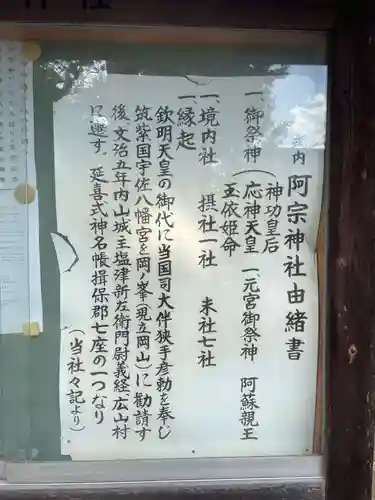 式内 阿宗神社由緒書
一、御祭神
神功皇后
応神天皇
玉依姫命
一元宮御祭神 阿蘇親王
一、境内社 摂社一社 末社七社
一縁起
欽明天皇の御代に当国司大伴狭手彦勅を奉じ
筑紫国宇佐八幡宮を岡ノ峯(現立岡山)に勧請す
後、文治五年内山城主塩津新左衛門尉義経広山村
に遷す。延喜式神名帳揖保郡七座の一つなり
(当社々記より)